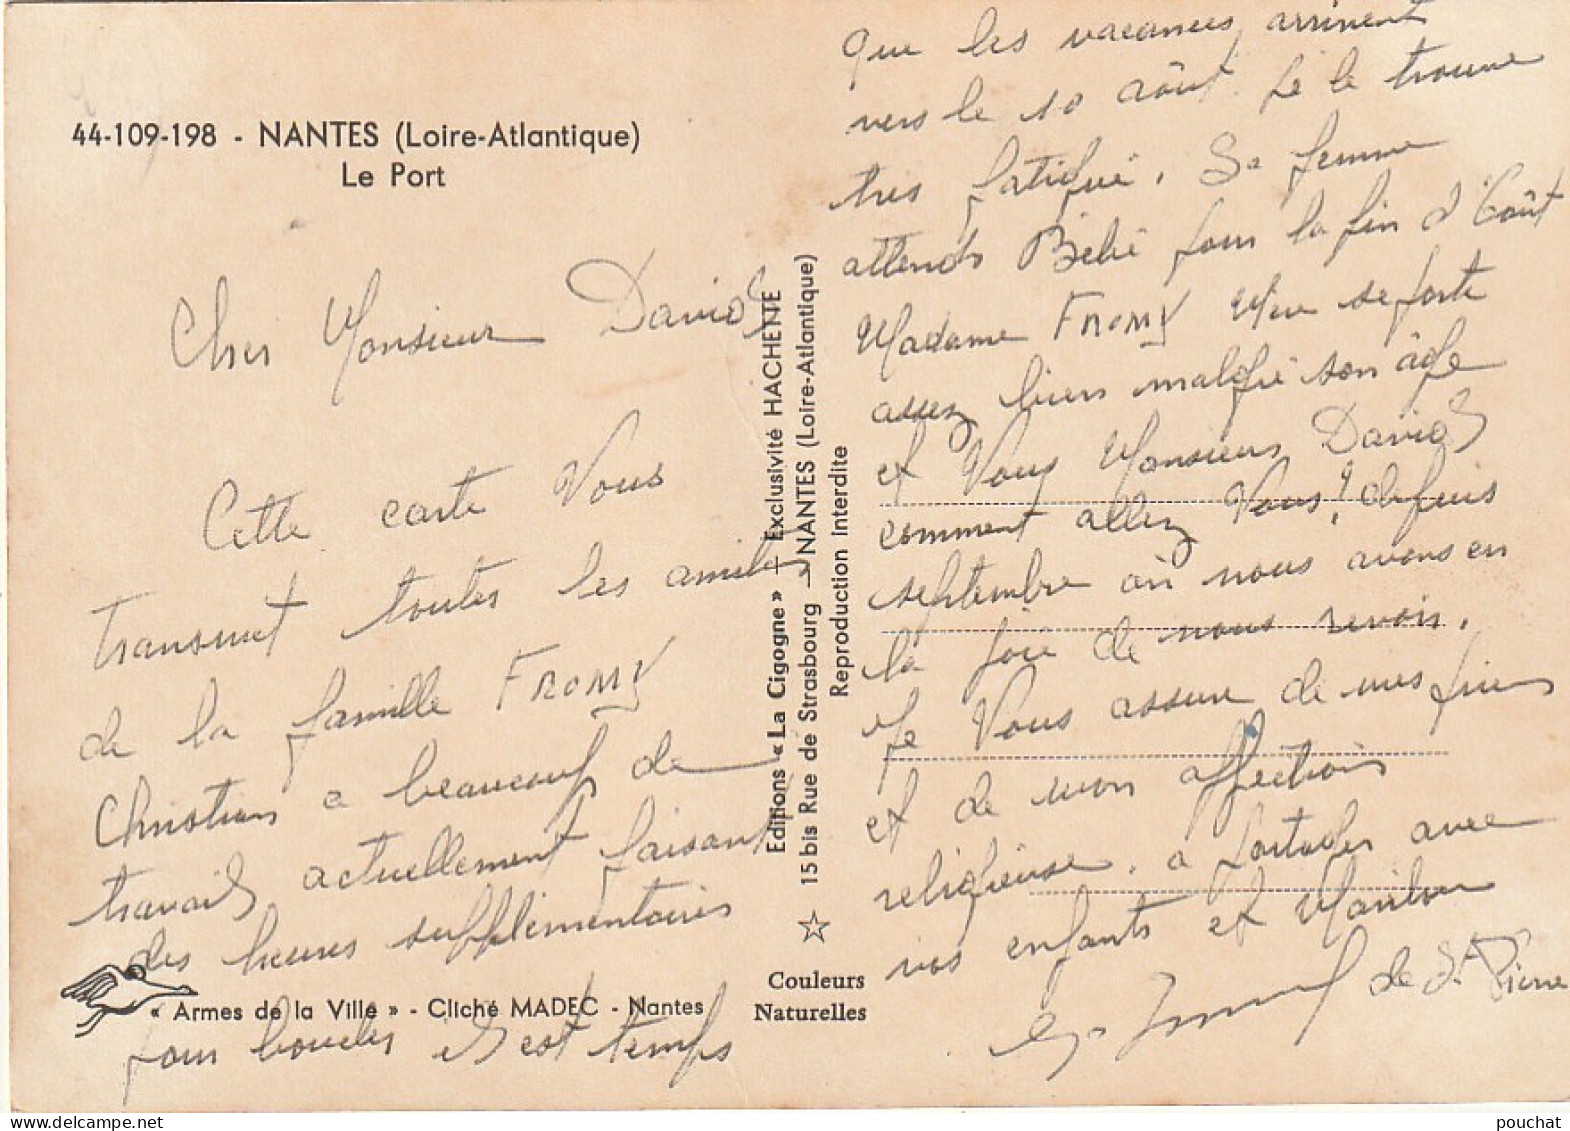 44-109-198 - NANTES (Loire-Atlantique)
Le Port
Cher Monsieur David
Cette carte Vous
transmet toutes les amitiés
de la famille FROMY
Christian a beaucoup de
travail actuellement faisant
des heures supplémentaires
pour boucler il est temps
« Armes de la Ville » - Cliché MADEC - Nantes
Editions « La Cigogne » - Exclusivité HACHETTE
15 bis Rue de Strasbourg - NANTES (Loire-Atlantique)
Reproduction interdite
Couleurs
Naturelles
que les vacances arrivent
vers le 10 août. Je le trouve
très fatigué. Sa femme
attends Bébé pour la fin d'Août
Madame FROMY se porte
assez bien malgré son âge
et Vous Monsieur David
comment allez Vous? depuis
septembre où nous avons en
la joie de nous revoir.
Je Vous assure de mes
et de mon affection
religieuse. a partager avec
vos enfants et
de St Pierre
pouchat